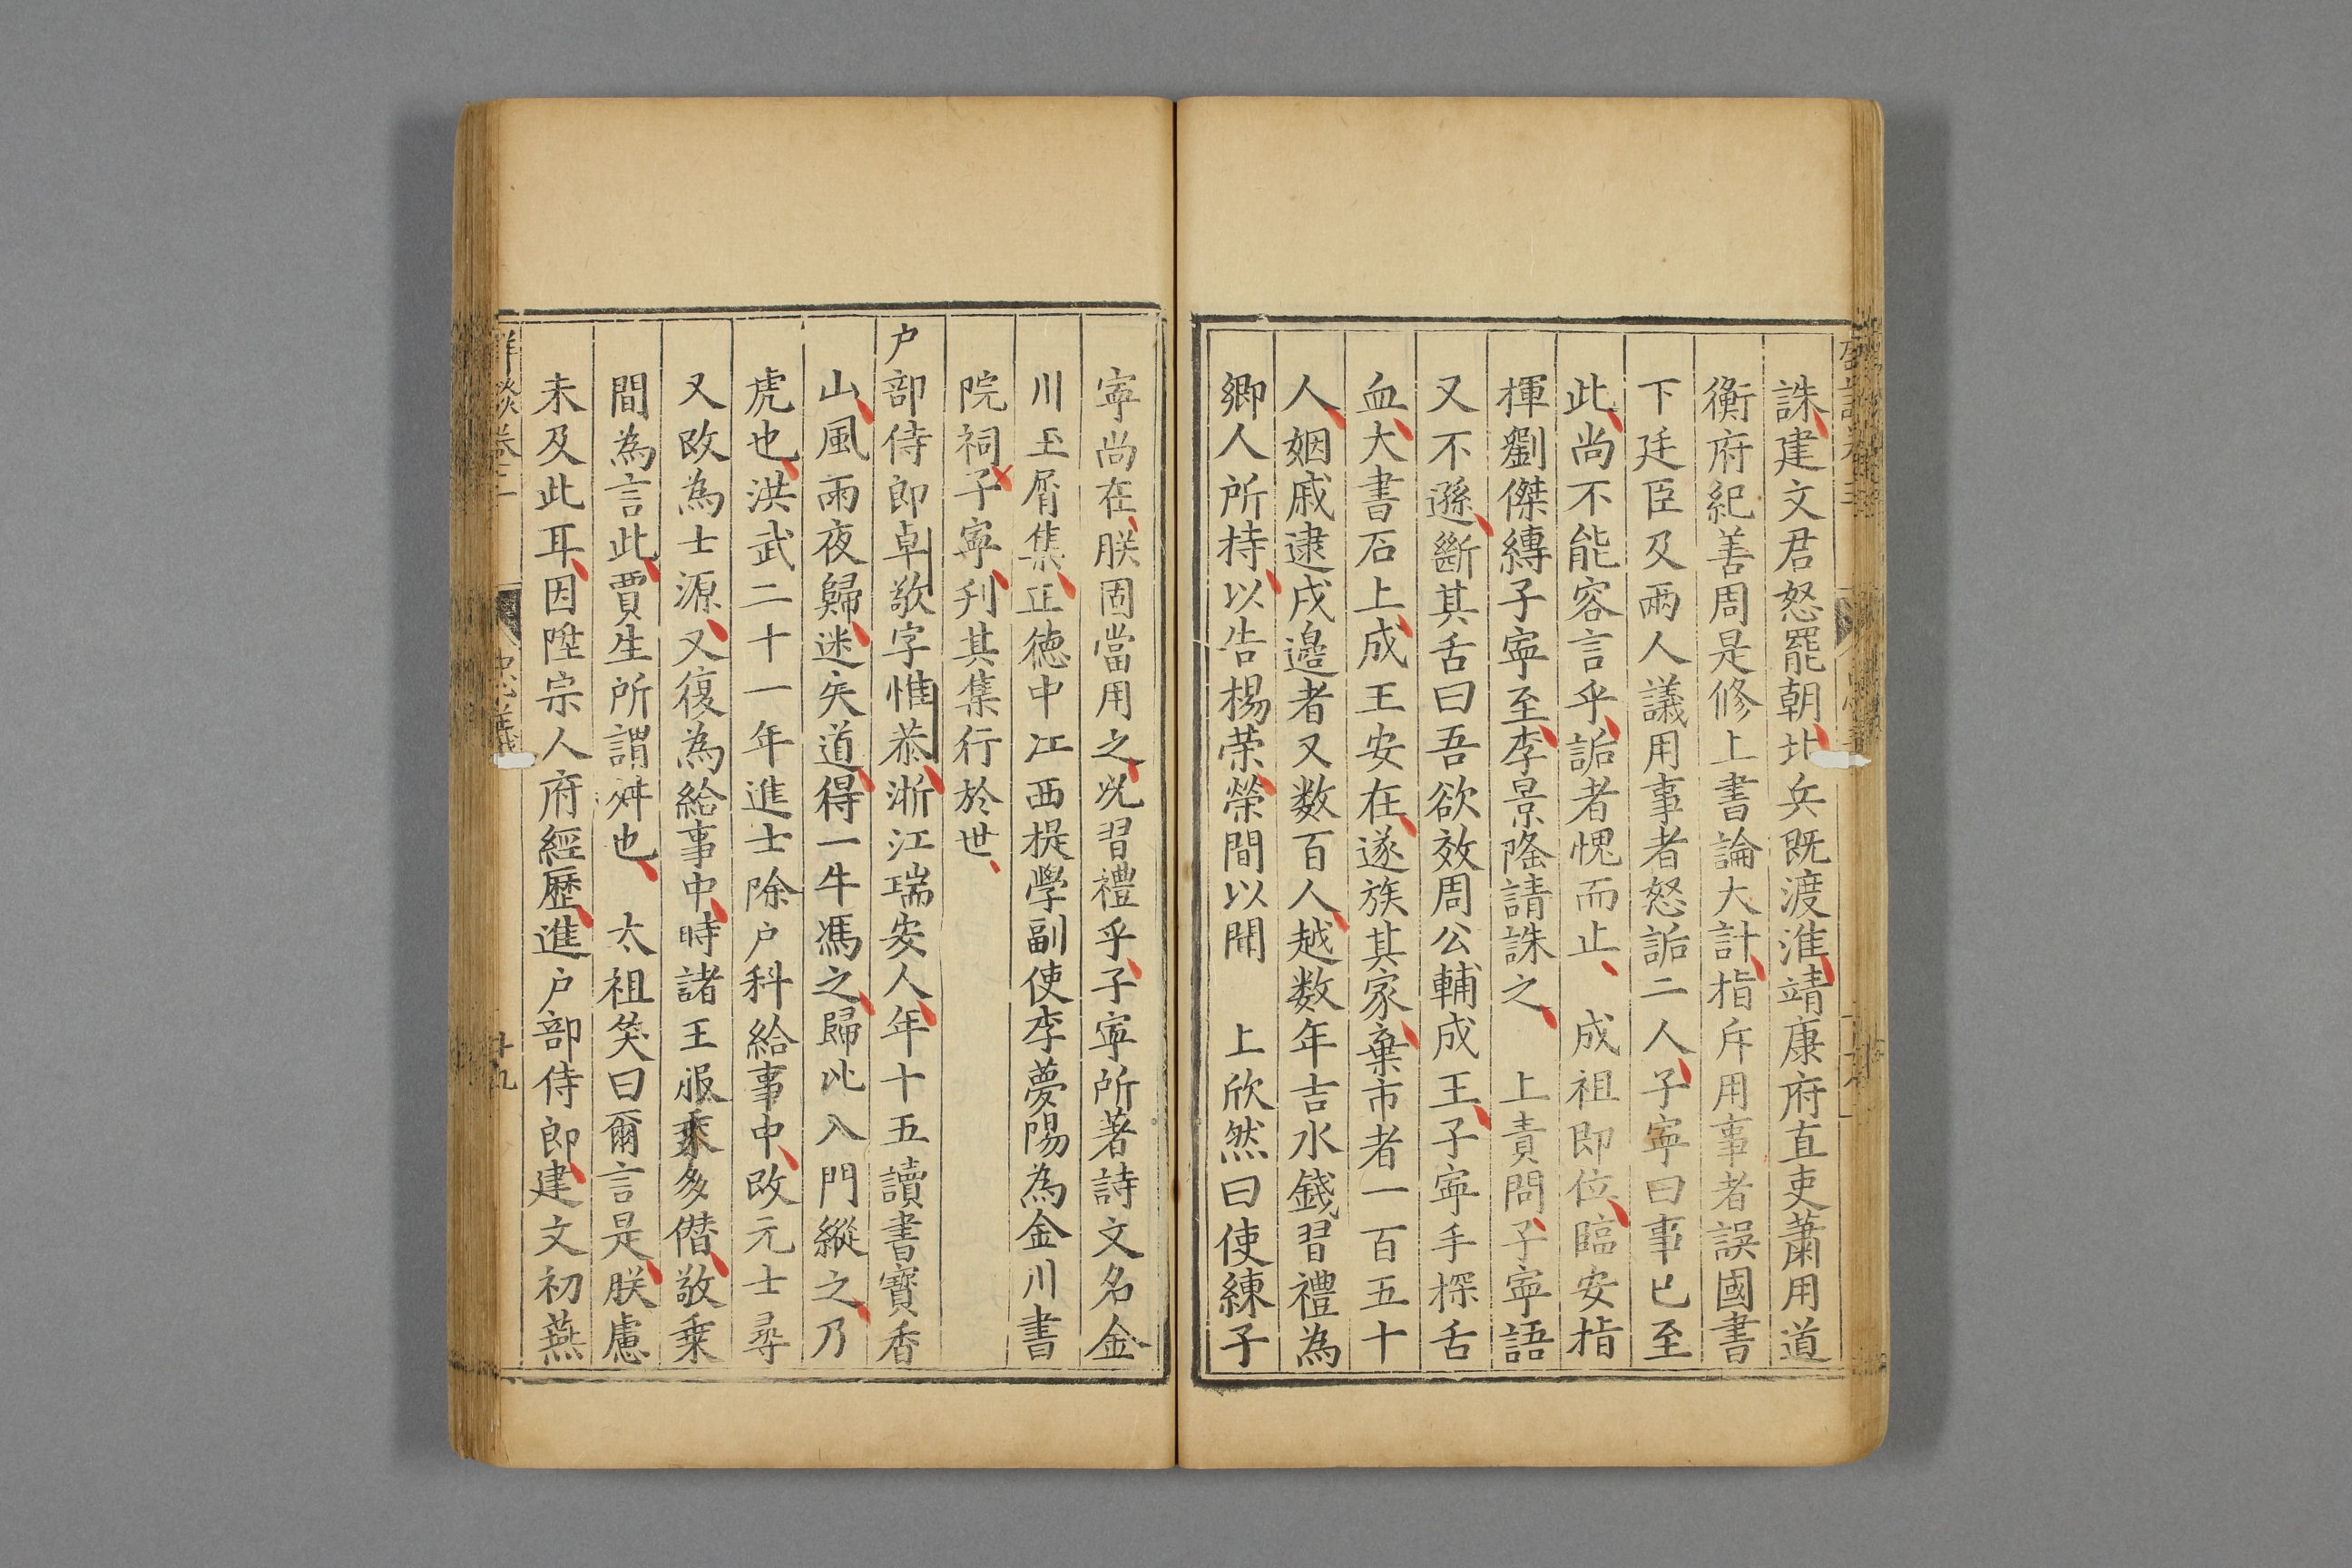 誅建文君怒罷朝北兵既渡淮靖康府直吏蕭用道
衡府紀善周是修上書論大計指斥用事者誤國書
下廷臣及兩人議用事者怒詬二人子寧曰事已至
此尚不能容言乎詬者愧而止成祖即位臨安指
揮劉傑縛子寧至李景隆請誅之上責問子寧語
又不遜斷其舌曰吾欲效周公輔成王子寧手探舌
血大書石上成王安在遂族其家棄市者一百五十
人姻戚逮戍邊者又数百人越数年吉水錢習禮為
鄉人所持以告楊荣榮間以聞上欣然曰使練子
寧尚在朕固當用之况習禮乎子寧所著詩文名金
川玉屑集正德中江西提學副使李夢陽為金川書
院祠子寧刋其集行於世
户部侍郎卓敬字惟恭浙江瑞安人年十五讀書寳香
山風雨夜歸迷失道得一牛馮之歸比入門縱之乃
虎也洪武二十一年進士除户科給事中改元士尋
又改為士源又復為給事中時諸王服乘多僣敬乗
間為言此賈生所謂舛也太祖笑曰爾言是朕慮
未及此耳因陞宗人府經歷進户部侍郎建文初燕
群談卷三 忠義 十九